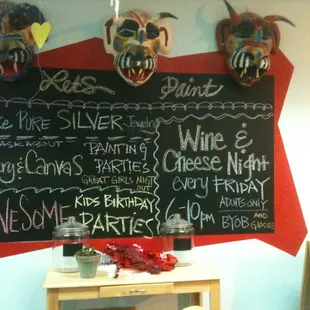 Lets Paint
PURE SILVER Jewelry
ASK ABOUT
& Canvas
PAINTING
PARTIES
GREAT GIRLS NIGHT
OUT
KIDS BIRTHDAY
PARTIES
Wine &
Cheese Night
every FRIDAY
ADULTS ONLY
6-10pm
BYOB AND